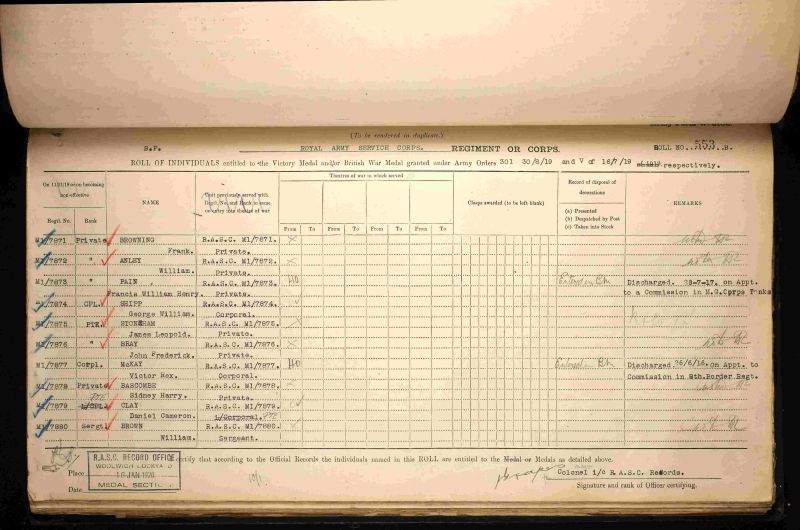 (To be rendered in duplicate.)
B.P. ROYAL ARMY SERVICE CORPS. REGIMENT OR CORPS. ROLL NO. 553 B.
ROLL OF INDIVIDUALS entitled to the Victory Medal and/or British War Medal granted under Army Orders 301 30/8/19 and V of 16/7/19 respectively.
On 11/11/18 or on becoming non-effective
Regtl. No. Rank
NAME
Unit previously served with Regtl. No. and Rank in same on entry into theatre of war
Theatres of war in which served
From To From To From To From To
Clasps awarded (to be left blank)
Record of disposal of decorations
(a) Presented
(b) Despatched by Post
(c) Taken into Stock
REMARKS
M1/7871 Private BROWNING R.A.S.C. M1/7871.
Frank. Private.
M1/7872 " ANLEY R.A.S.C. M1/7872.
William. Private.
M1/7873 " PAIN R.A.S.C. M1/7873. HO Discharged. 28-7-17. on Appt.
Francis William Henry. Private. to a Commission in M.G.Corps Tanks
M1/7874 CPL. SHIPP R.A.S.C. M1/7874.
George William. Corporal.
M1/7875 PTE. STONEHAM R.A.S.C. M1/7875.
James Leopold. Private.
M1/7876 " BRAY R.A.S.C. M1/7876.
John Frederick. Private.
M1/7877 Corpl. McKAY R.A.S.C. M1/7877. HO Discharged. 26/6/16. on Appt. to
Victor Rex. Corporal. Commission in 8th.Border Regt.
M1/7878 Private BASCOMBE R.A.S.C. M1/7878.
Sidney Harry. Private.
M1/7879 L/CPL. PTE CLAY R.A.S.C. M1/7879.
Daniel Cameron. L/Corporal. PTE
M1/7880 Sergt. BROWN R.A.S.C. M1/7880.
William. Sergeant.
certify that according to the Official Records the individuals named in this ROLL are entitled to the Medal or Medals as detailed above.
R.A.S.C. RECORD OFFICE
WOOLWICH DOCKYARD
16 JAN 1920
MEDAL SECTION
Place
Date
Colonel i/c R.A.S.C. Records.
Signature and rank of Officer certifying.